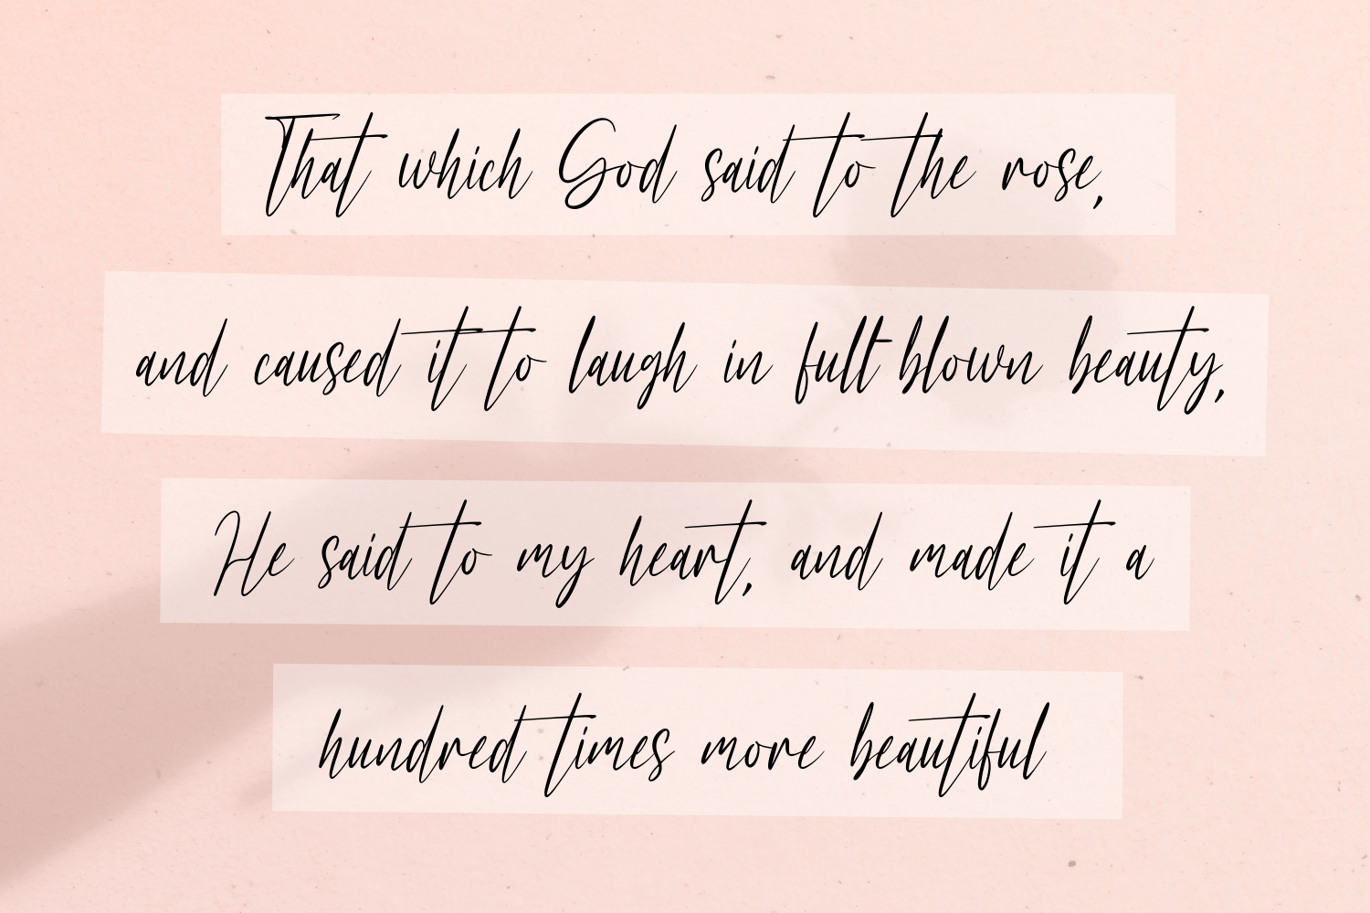 That which God said to the rose,
and caused it to laugh in full-blown beauty,
He said to my heart, and made it a
hundred times more beautiful